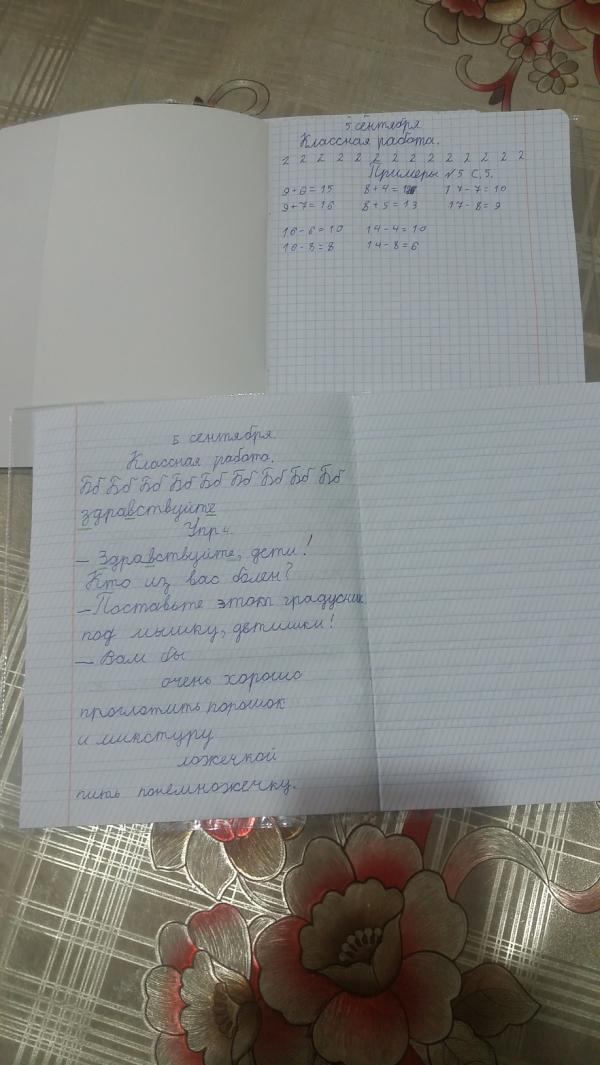 5 сентября
Классная работа.
2 2 2 2 2 2 2 2 2 2 2 2 2 2
Примеры №5 с.5.
9+6=15 8+4= 17-7=10
9+7=16 8+5=13 17-8=9
16-6=10 14-4=10
16-8=8 14-8=6
5 сентября
Классная работа.
Бб Бб Бб Бб Бб Бб Бб Бб Бб
здравствуйте
Упр 4.
– Здравствуйте, дети!
Кто из вас болен?
– Поставьте этот градусник
под мышку, детишки!
– Вам бы
очень хорошо
проглотить порошок
и микстуру
ложечкой
пить понемножечку.